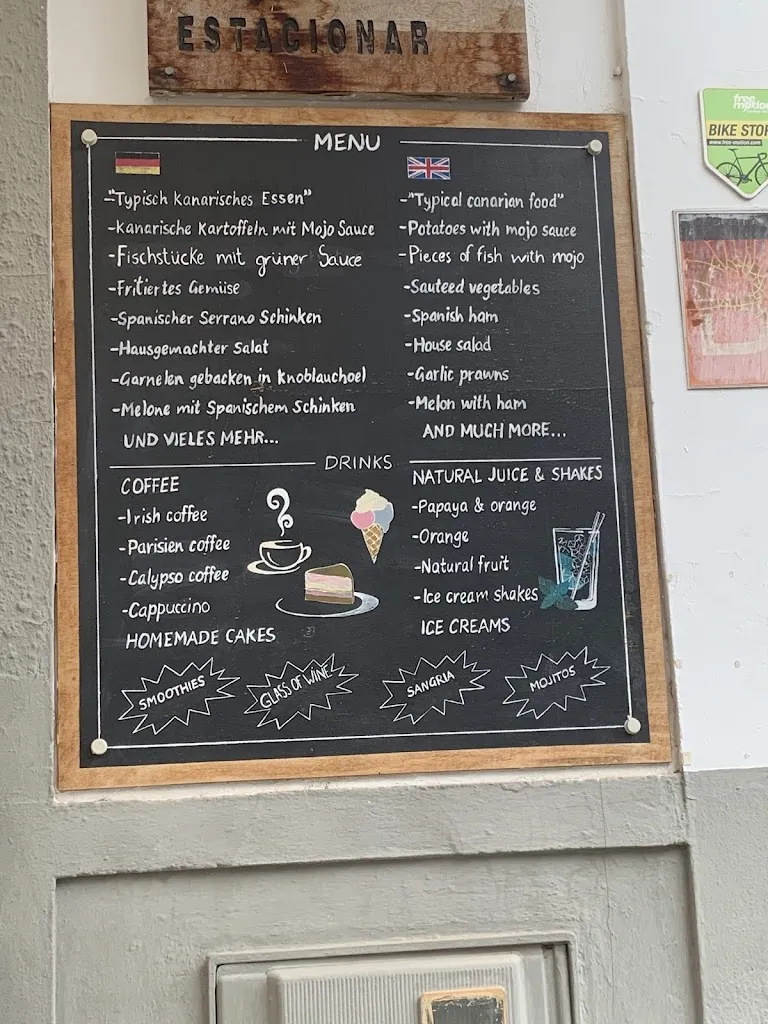 ESTACIONAR
MENU
-"Typisch kanarisches Essen"
-kanarische Kartoffeln mit Mojo Sauce
-Fischstücke mit grüner Sauce
-Fritiertes Gemüse
-Spanischer Serrano Schinken
-Hausgemachter Salat
-Garnelen gebacken in Knoblauchoel
-Melone mit Spanischem Schinken
UND VIELES MEHR...
-"Typical canarian food"
-Potatoes with mojo sauce
-Pieces of fish with mojo
-Sauteed vegetables
-Spanish ham
-House salad
-Garlic prawns
-Melon with ham
AND MUCH MORE...
DRINKS
COFFEE
-Irish coffee
-Parisien coffee
-Calypso coffee
-Cappuccino
HOMEMADE CAKES
NATURAL JUICE & SHAKES
-Papaya & orange
-Orange
-Natural fruit
-Ice cream shakes
ICE CREAMS
SMOOTHIES
GLASS OF WINE
SANGRIA
MOJITOS
free
motion
BIKE STOP
www.free-motion.com